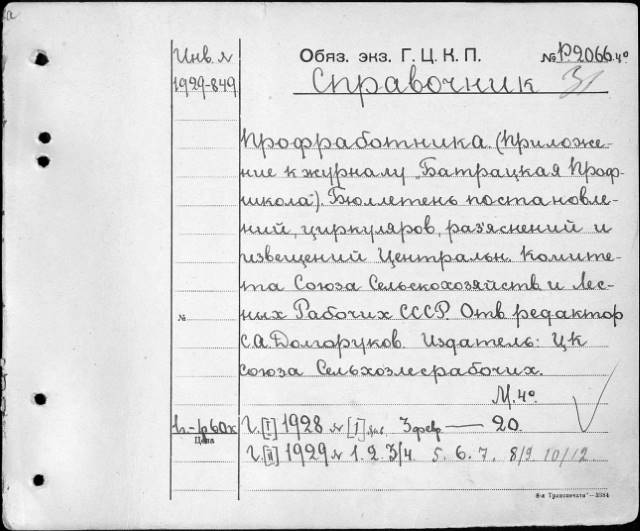 Инв. №
1929-849
Обяз. экз. Г. Ц. К. П.
№ Р.2066. 4°
Справочник 31
Профработника. (Приложе-
ние к журналу „Батрацкая Проф-
школа“). Бюллетень постановле-
ний, циркуляров, раз'яснений и
извещений Центральн. Комите-
та Союза Сельскохозяйств и Лес-
№ ных Рабочих СССР. Отв. редактор
С.А. Долгоруков. Издатель: ЦК
союза Сельхозлесрабочих.
М. 4°.
Цена
Г. [I] 1928 № [1] 3 февр — 20.
Г. [II] 1929 № 1. 2. 3/4. 5. 6. 7. 8/9. 10/12
8-я Транспечати"—3384